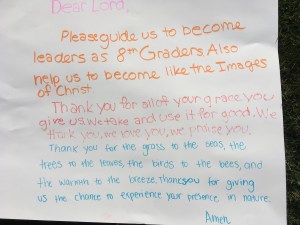 Dear Lord,
Please guide us to become
leaders as 8th Graders. Also
help us to become like the Images
of Christ.
Thank you for all of your grace you
give us. We take and use it for good. We
thank you, we love you, we praise you.
Thank you for the grass to the seas, the
trees to the leaves, the birds to the bees, and
the warmth to the breeze. Thank you for giving
us the chance to experience your presence in nature.
Amen